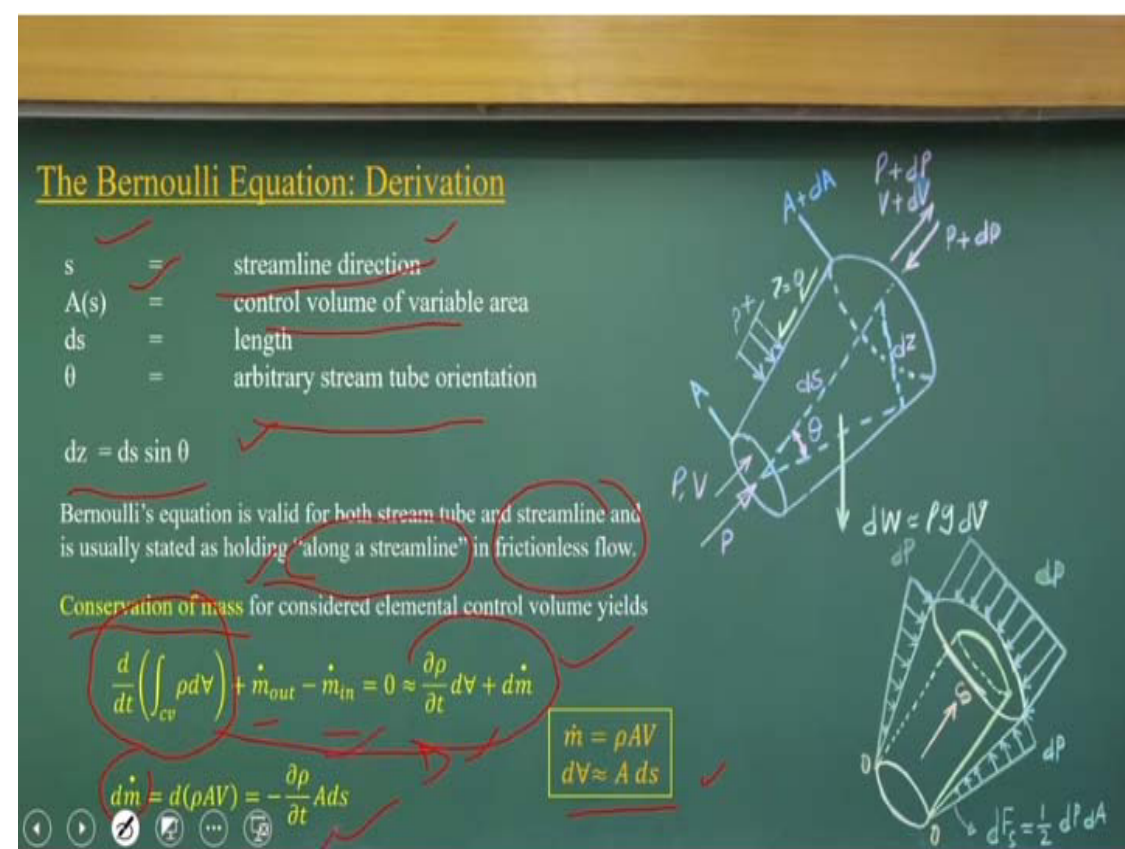 The Bernoulli Equation: Derivation
s = streamline direction
A(s) = control volume of variable area
ds = length
θ = arbitrary stream tube orientation
dz = ds sin θ
Bernoulli's equation is valid for both stream tube and streamline and
is usually stated as holding "along a streamline" in frictionless flow.
Conservation of mass for considered elemental control volume yields
d/dt (∫cv ρd∀) + ṁout − ṁin = 0 ≈ ∂ρ/∂t d∀ + dṁ
dṁ = d(ρAV) = −∂ρ/∂t Ads
ṁ = ρAV
d∀ ≈ A ds
A+dA
P+dP
V+dV
P+dP
τ=0
dz
ds
A
θ
P,V
P
dW ≈ ρg d∀
dP
dP
S
dP
0
0
dFs = 1/2 dP dA